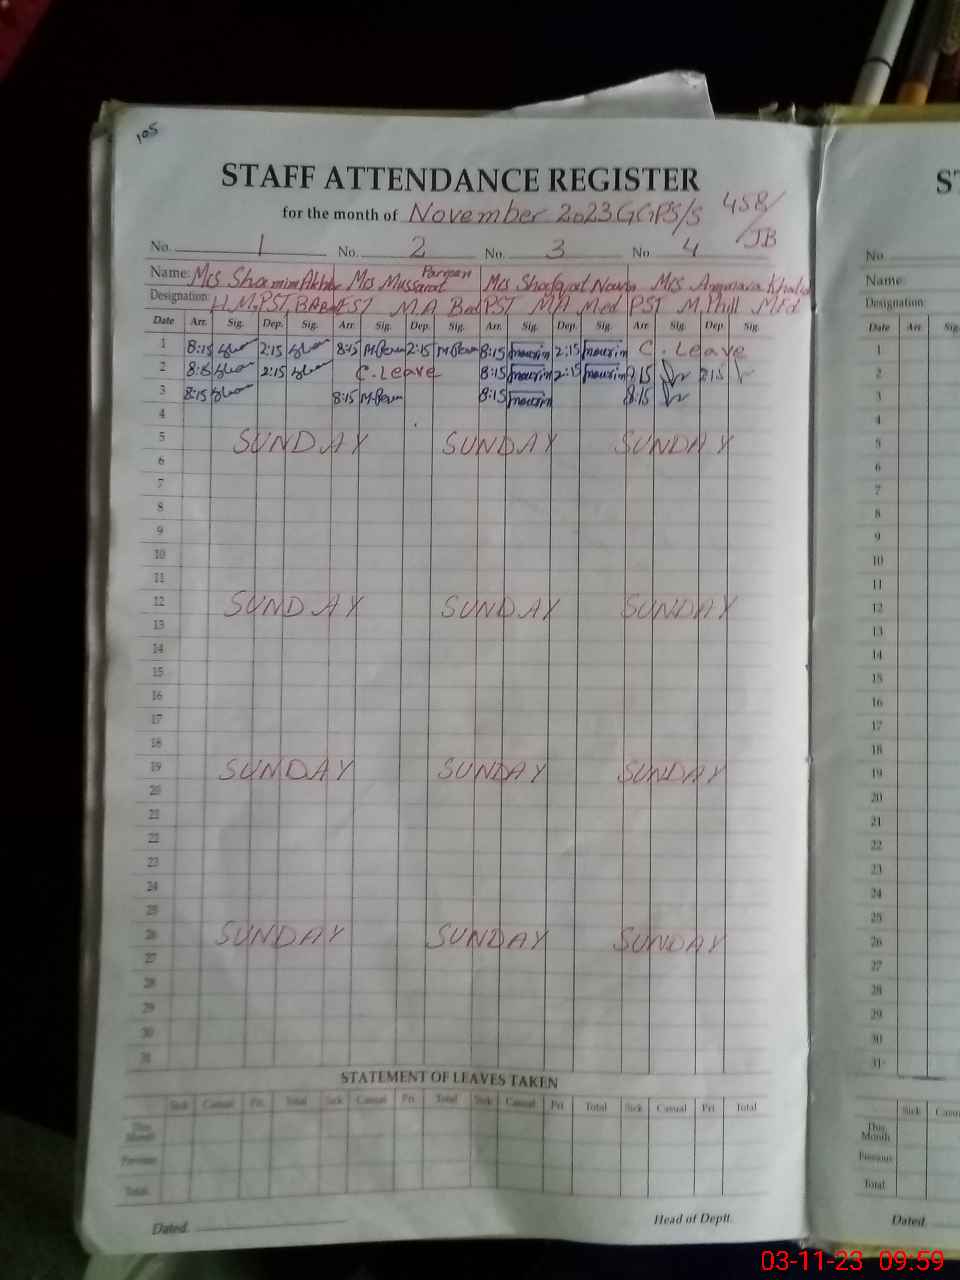 105
STAFF ATTENDANCE REGISTER
for the month of November 2023 GGPS/S 458/JB
No. 1 No. 2 No. 3 No 4
Name: Mrs Shamim Akhtar Mrs Mussarat Parveen Mrs Shafqat Nourin Mrs Ammara Khalid
Designation: H.M, PST, BA Bed EST M.A Bed PST M.A Med PST M.Phill M.Ed
Date Arr. Sig. Dep. Sig. Arr. Sig. Dep. Sig. Arr. Sig. Dep. Sig. Arr Sig. Dep Sig.
1 8:15 2:15 8:15 M.Perveen 2:15 M.Perveen 8:15 nourin 2:15 nourin C. Leave
2 8:15 2:15 C. Leave 8:15 nourin 2:15 nourin 8:15 2:15
3 8:15 8:15 M.Perveen 8:15 nourin 8:15
4
5 SUNDAY SUNDAY SUNDAY
6
7
8
9
10
11
12 SUNDAY SUNDAY SUNDAY
13
14
15
16
17
18
19 SUNDAY SUNDAY SUNDAY
20
21
22
23
24
25
26 SUNDAY SUNDAY SUNDAY
27
28
29
30
31
STATEMENT OF LEAVES TAKEN
Sick Casual Pri. Total Sick Casual Pri Total Sick Casual Pri Total Sick Casual Pri Total
This Month
Previous
Total
Dated. Head of Deptt.
ST
No
Name:
Designation:
Date Arr. Sig.
1
2
3
4
5
6
7
8
9
10
11
12
13
14
15
16
17
18
19
20
21
22
23
24
25
26
27
28
29
30
31
Sick Casu
This Month
Previous
Total
Dated.
03-11-23 09:59